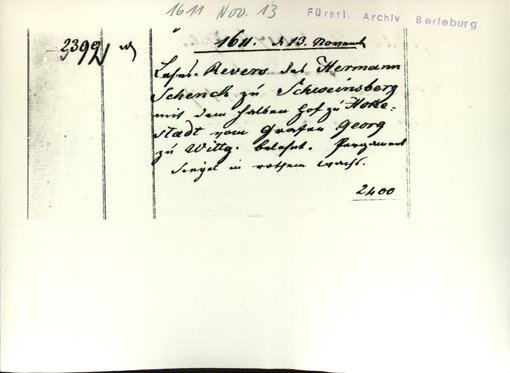 1611 Nov. 13
Fürstl. Archiv Berleburg
2399
1611. d 13. Novemb
Lehns-Revers des Hermann
Schenck zu Schweinsberg
mit dem halben Hof zu
stadt vom Grafen Georg
zu Wittg. belehnt. Pergament
Siegel in rothem Wachs.
2400